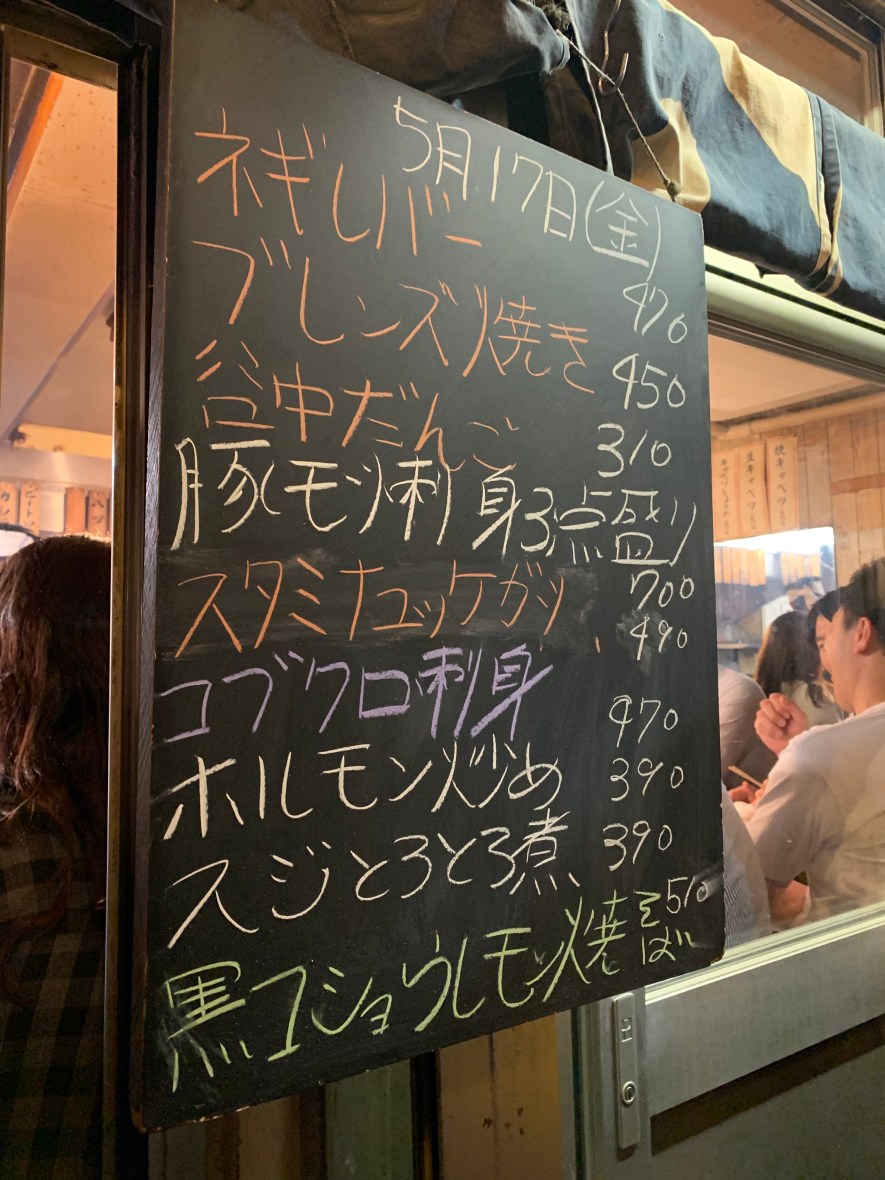 5月17日(金)
ネギレバー 470
ブレンズ焼き 450
谷中だんご 310
豚(モツ)刺身3点盛り 700
スタミナユッケガツ 490
コブクロ刺身 470
ホルモン炒め 390
スジとろとろ煮 390
黒コショウレモン焼そば 510
焼キャベツ
生キャベツ